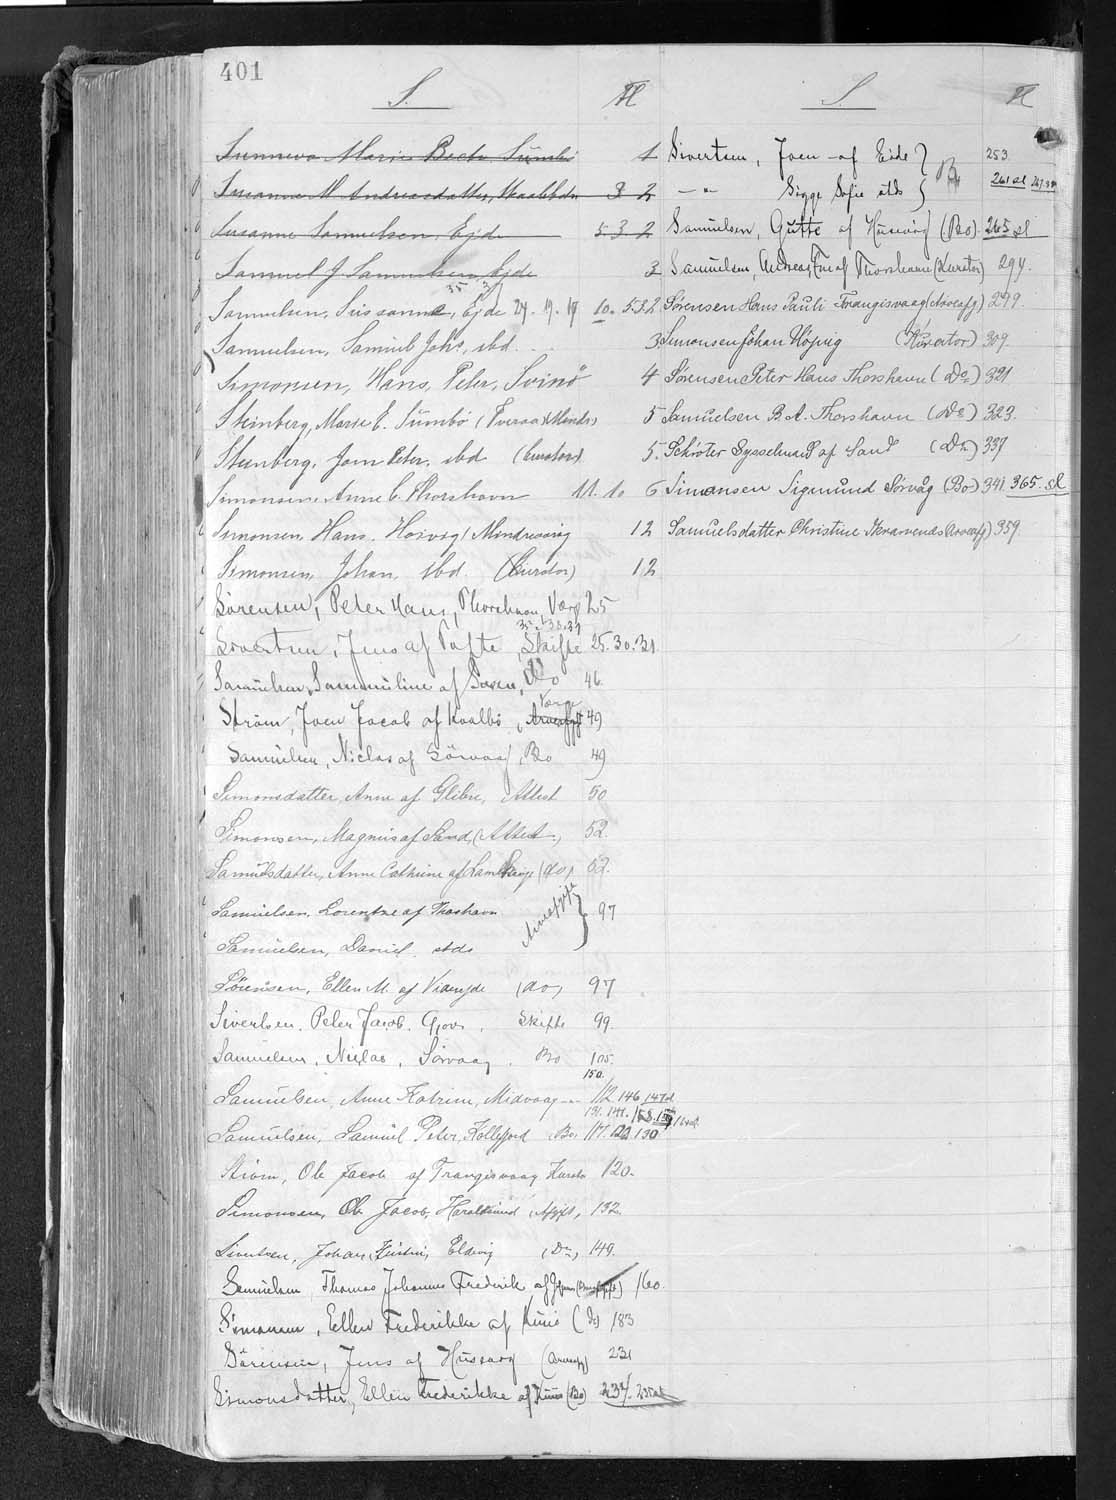 401
S. Fl
Sunneva Marie Sumbø 1
Susanne M Andreasdatter, 3 2
Susanne Samuelsen, Ejde 5 3 2
Samuel J Samuelsen, Ejde 3
35 37
Samuelsen, Sussanne, Ejde 27. 19. 17 10. 5.3.2
Samuelsen, Samuel Johs, ibd. 3
Simonsen, Hans, Peter, Svinø 4
Steinberg, Marie E. Sumbø 5
Steinberg, Jom Peter. ibd (Curator) 5.
Simonsen, Anne C. Thorshavn 11. 10 6
Simonsen Hans. Hoivig 12
Simonsen, Johan, ibd. (Curator) 12
Sørensen, Peter Hans, Thorshavn, Værge 25
35. 30. 31
Sivertsen, Jens af Tofte, Skifte 25. 30. 31
Samuelsen, Sammuline af, Bo 46
Værge
Strøm, Joen Jacob af Kvalbø, (Arveafgift 49
Samuelsen, Niclas af Sörvaag, Bo 49
Simonsdatter, Anne af Glibre, Attest 50
Simonsen, Magnus af Sand, (Attest) 52.
Samuelsdatter, Anne Cathrine af (do) 52.
Samuelsen, Lorentze af Thorshavn Arveafgift } 97
Samuelsen, Daniel. stds
Sørensen, Ellen M. af Viderejde (do) 97
Sivertsen. Peter Jacob. Gjov. Skifte 99.
Samuelsen, Niclas, Sörvaag. Bo 105.
150.
Samuelsen, Anne Katrine, Midvaag -"- 112. 146. 147 sl
131. 141. 158. 159
Samuelsen, Samuel Peter, Kollefjord Bo. 117. 122. 130
Strøm, Ole Jacob af Trangisvaag Kurator 120.
Simonsen, Ole Jacob, Haraldsund (Afgift, 132.
Sivertsen, Johan, Eldevig (Do) 149.
Samuelsen, Thomas Johannes Frederik af (Arveafgift) 160
Simonsen, Ellen Frederikke af Kunø (do) 183
Sörensen, Jens af Husevig (Arveafg) 231
Simonsdatter, Ellen Frederikke af Kunø (Bo) 234. 235 sl
S. Fl
Sivertsen, Joen af Eide } Bo 253.
-"- Sigge Sofie stds } 261 sl
Samuelsen, Gutte af Husevig (Bo) 265 sl
Samuelsen, Andreas, af Thorshavn (Kurator) 294.
Sørensen Hans Pauli Trangisvaag (Arveafg) 299.
Simonsen Johan Höjvig (Kurator) 309.
Sørensen Peter Hans Thorshavn (Do) 321
Samuelsen B. A. Thorshavn (Do) 323.
Schrøter Sysselmand af Sand (Do) 337
Simonsen Sigmund Sørvåg (Bo) 341. 365. sl
Samuelsdatter Christine (Arveafg) 359.